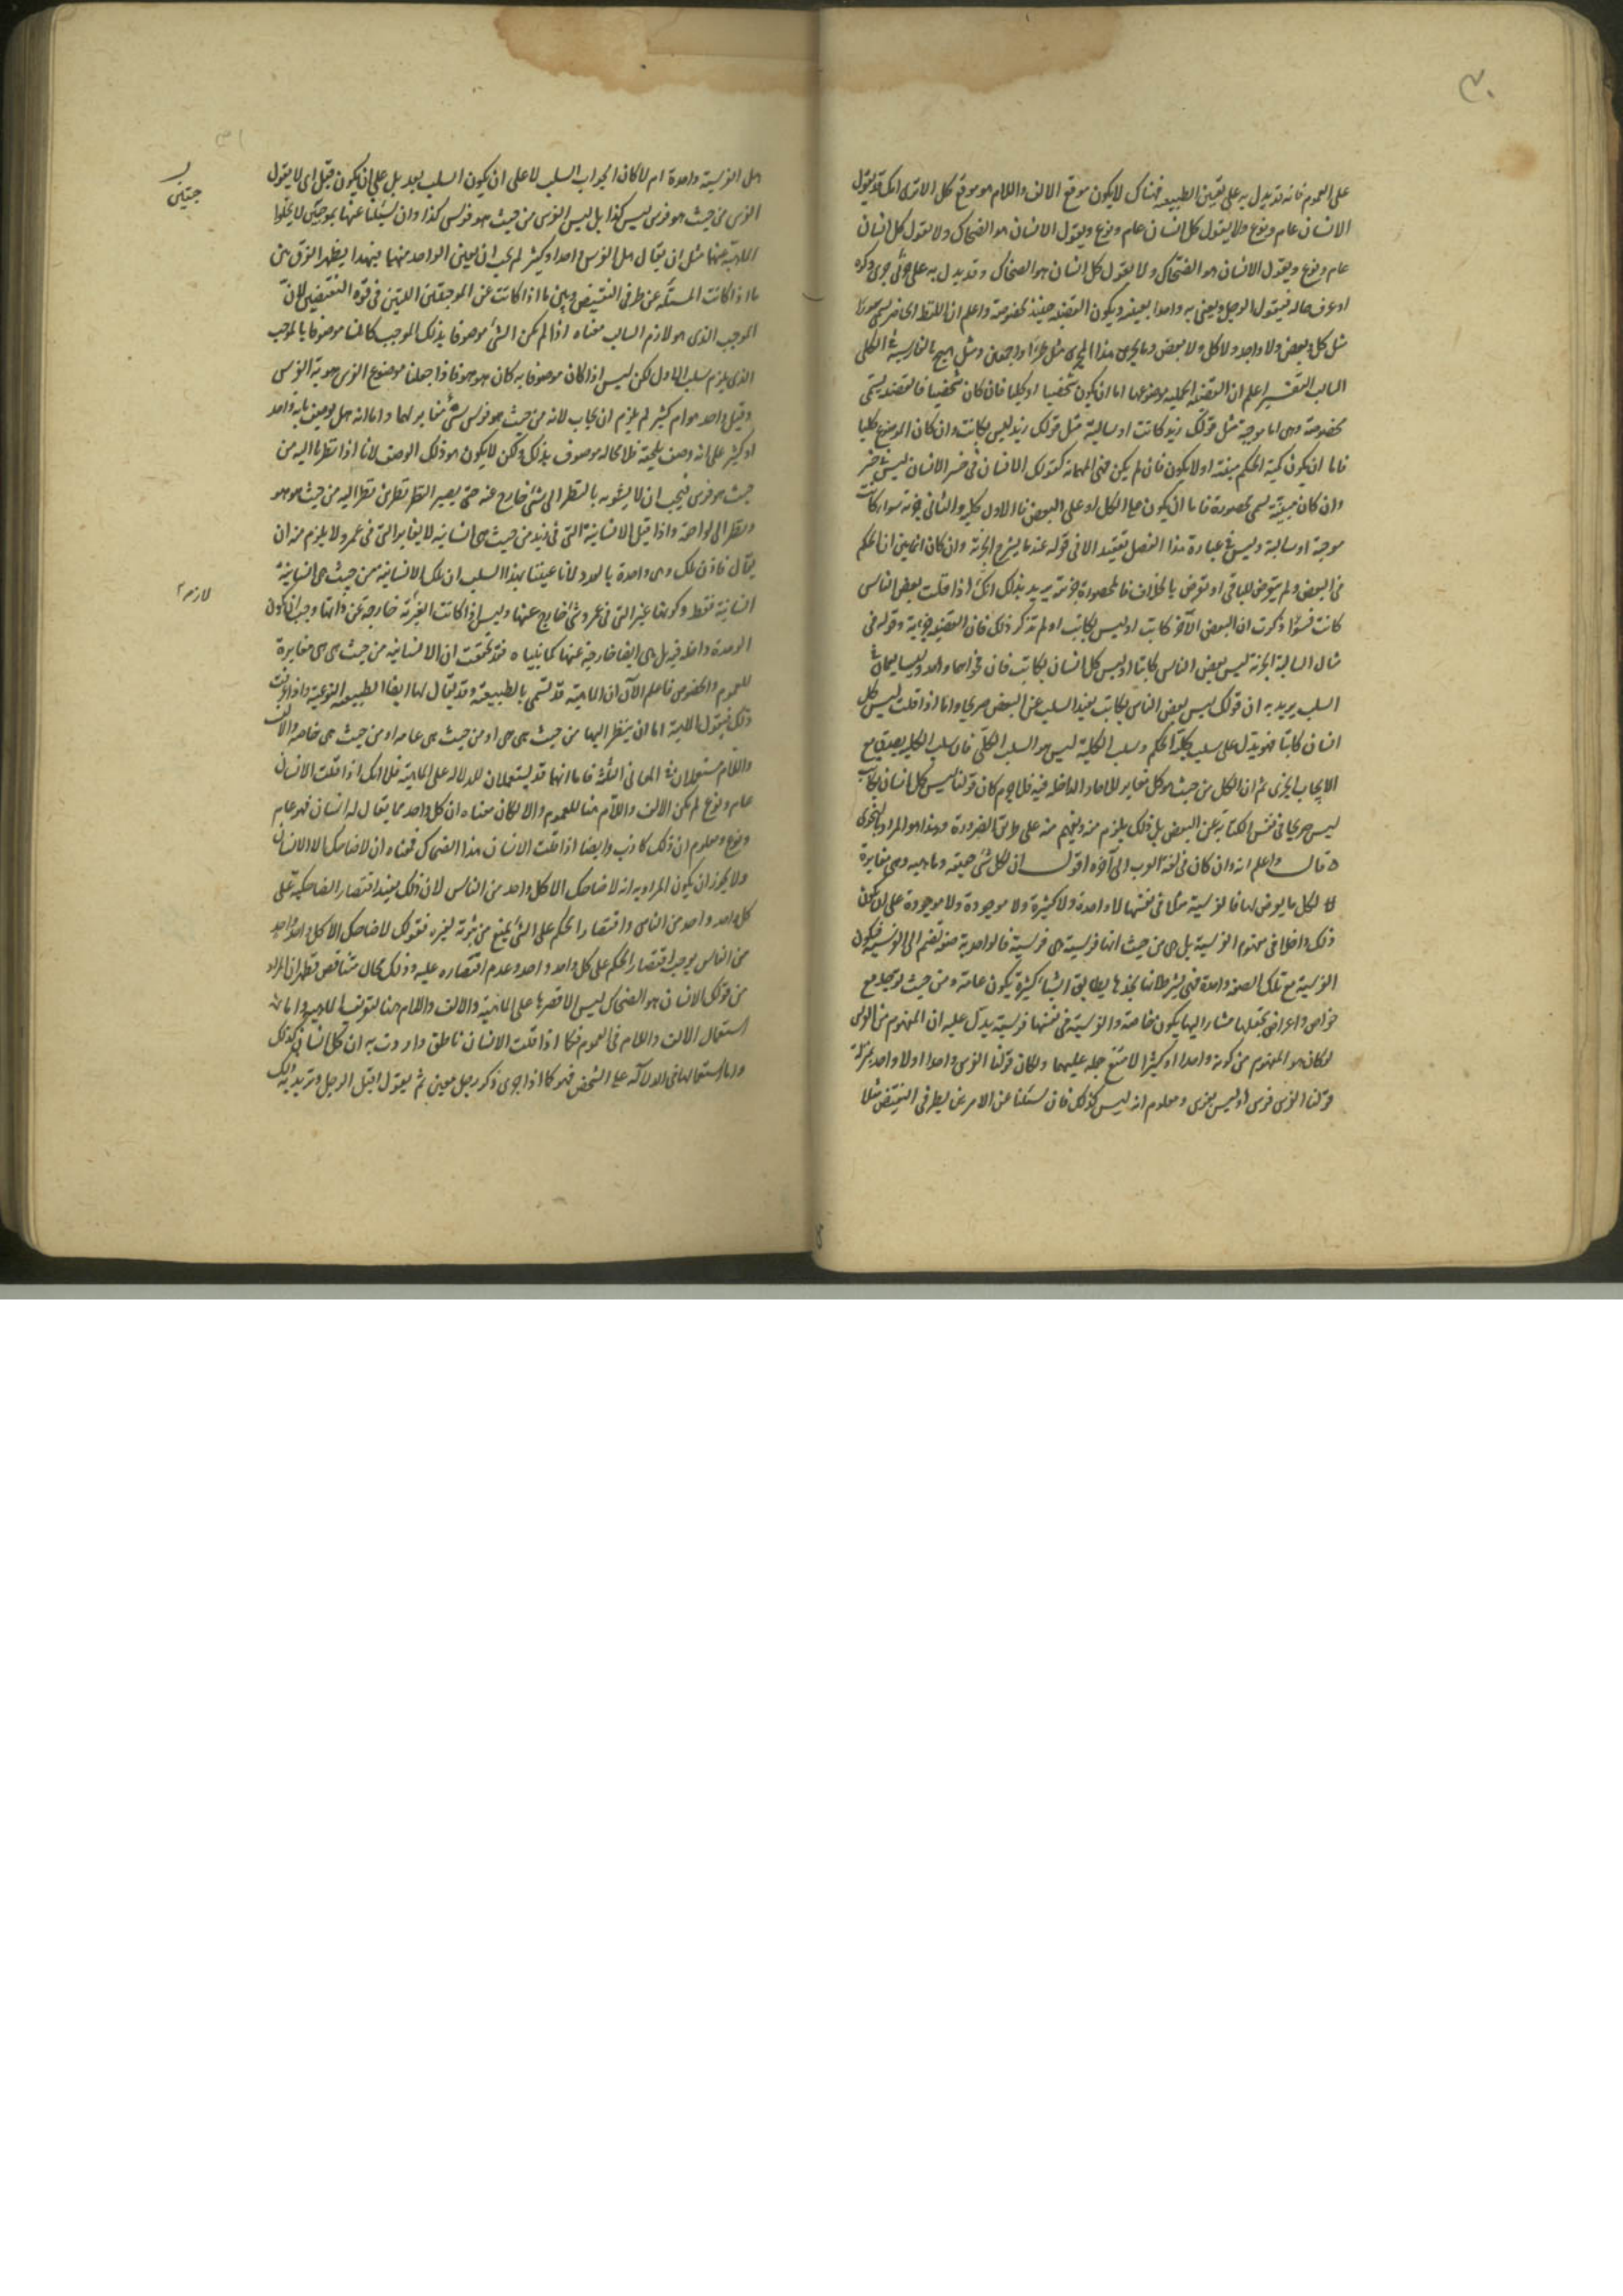 ٣٠
على العموم فانه قد يدل به على تعيين الطبيعة فهناك لا يكون موقع الالف واللام هو موقع كل الا ترى انك قد تقول
الانسان عام ونوع ولا يقول كل انسان عام ونوع ويقول الانسان هو الضحاك ولا يقول كل انسان
عام ونوع ويقول الانسان هو الضحاك ولا يقول كل انسان هو الضحاك وقد يدل به على جزئى جرى ذكره
او عرف حاله فيقول الرجل ويعنى به واحدا بعينه ويكون القضية حينئذ مخصوصة واعلم ان اللفظ الحاصر يسمى سورا
مثل كل وبعض ولا واحد ولا كل ولا بعض وما يجرى هذا المجرى مثل طرا واجمعين ومثل هيچ بالفارسية فى الكلى
السالب التفسير اعلم ان القضية الحملية موضوعها اما ان يكون شخصيا او كليا فان كان شخصيا فالقضية يسمى
مخصوصة وهى اما موجبة مثل قولك زيد كاتب او سالبة مثل قولك زيد ليس بكاتب وان كان الموضوع كليا
فاما ان يكون كمية الحكم مبينة او لا يكون فان لم يكن فهى المهملة كقولك الانسان فى خسر الانسان ليس فى خسر
وان كان مبينة يسمى محصورة فاما ان يكون على الكل او على البعض فالاول كلية والثانى جزئية سوا كانت
موجبة او سالبة وليس فى عبارة هذا الفصل تعقيد الا فى قوله عند ما يشرح الجزئية وان كان انما يبين ان الحكم
فى البعض ولم يتعرض للباقى او تعرض بالخلاف فالمحصورة جزئية يريد بذلك انك اذا قلت بعض الناس
كاتب فسوا ذكرت ان البعض الاخر كاتب او ليس بكاتب او لم تذكر ذلك فان القضية جزئية وقوله فى
مثال السالبة الجزئية ليس بعض الناس بكاتب او ليس كل انسان بكاتب فان فحواهما واحد وليسا يعمان فى
السلب يريد به ان قولك ليس بعض الناس بكاتب يفيد السلب عن البعض صريحا واما اذا قلت ليس كل
انسان كاتبا فهو يدل على سلب كلية الحكم وسلب الكلية ليس هو السلب الكلى فان سلب الكلية يصدق مع
الايجاب الجزئى ثم ان الكل من حيث هو كل مغاير للاحاد الداخلة فيه فلا جرم كان قولنا ليس كل انسان بكاتب
ليس صريحا فى نفس الكتابة عن البعض بل ذلك يلزم منه ويفهم منه على طريق الضرورة وهذا هو المراد بالفحوى
ه قال واعلم انه وان كان فى لغة العرب الى آخره اقول ان لكل شى حقيقة وماهية وهى مغايرة
لكل ما يعرض لها فالفرسية مثلا فى نفسها لا واحدة ولا كثيرة ولا موجودة ولا موجودة على ان يكون
ذلك داخلا فى مفهوم الفرسية بل هى من حيث انها فرسية هى فرسية فالواحدية صفة تنضم الى الفرسية فيكون
الفرسية مع تلك الصفة واحدة فهى بشرط انها بحدها يطابق اشيا كثيرة يكون عامة ومن حيث توجد مع
خواص واعراض تجعلها مشارا اليها يكون خاصة والفرسية فى نفسها فرسية يدل عليه ان المفهوم من الفرس
لو كان هو المفهوم من كونه واحدا او كثيرا لامتنع حمله عليهما ولكان قولنا الفرس واحد او لا واحد بمنزلة
قولنا الفرس فرس او ليس بفرس ومعلوم انه ليس كذلك فان سئلنا عن الامر عن طرفى النقيض مثلا
٣١
هل الفرسية واحدة ام لا كان الجواب السلب لا على ان يكون السلب بعد بل على ان يكون قبل اى لا يقول
الفرس من حيث هو فرس ليس كذا بل ليس الفرس من حيث هو فرس كذا وان سئلنا عنها بموجبتين لا يخلوا
الماهية عنهما مثل ان يقال هل الفرس واحد او كثير لم يجب ان يعين الواحد منهما فبهذا يظهر الفرق بين
ما اذا كانت المسئلة عن طرفى النقيض وبين ما اذا كانت عن الموجبتين اللتين فى قوة النقيضين لان
الموجب الذى هو لازم السالب معناه اذا لم يكن الشئ موصوفا بذلك الموجب كان هنا موصوفا بالموجب
الذى يلزم سلب الاول لكن ليس اذا كان موصوفا به كان هو هو فاذا جعلنا موضوع الفرس هوية الفرس
وقيل واحد هو ام كثير لم يلزم ان يجاب لانه من حيث هو فرس شئ مغاير لهما واما انه هل يوصف بانه واحد
او كثير على انه وصف يلحقه فلا محالة موصوف بذلك ولكن لا يكون هو ذلك الوصف لانا اذا نظرنا اليه من
حيث هو فرس فيجب ان لا يشوبه بالنظر الى شئ خارج عنه حتى يصير النظر نظرين نظر اليه من حيث هو هو
ونظر الى لواحقه واذا قيل الانسانية التى فى زيد من حيث هى انسانية لا يغاير التى فى عمرو لا يلزم منه ان
يقال فاذن تلك وهى واحدة بالعدد لانا عنينا بهذا السلب ان تلك الانسانية من حيث هى انسانية
انسانية فقط وكونها غير التى فى عمرو شئ خارج عنها وليس اذا كانت الغيرية خارجة عن ذاتها وجب ان يكون
الوحدة داخلة فيه بل هى ايضا خارجة عنها كما بيناه فقد تحققت ان الانسانية من حيث هى هى مغايرة
للعموم والخصوص فاعلم الآن ان الماهية قد تسمى بالطبيعة وقد يقال لها ايضا الطبيعة النوعية واذا عرفت
ذلك فنقول الماهية اما ان ينظر اليها من حيث هى هى او من حيث هى عامة او من حيث هى خاصة والالف
واللام مستعملان فى المعانى الثلثة فاما انهما قد يستعملان للدلالة على الماهية فلانك اذا قلت الانسان
عام ونوع لم يكن الالف واللام هنا للعموم والا لكان معناه ان كل واحد مما يقال له انسان فهو عام
ونوع ومعلوم ان ذلك كاذب وايضا اذا قلت الانسان هذا الضحاك فمعناه ان لا ضاحك الا الانسان
ولا يجوز ان يكون المراد به انه لا ضاحك الا كل واحد من الناس لان ذلك يفيد اقتصار الضاحكية على
كل واحد واحد من الناس واقتصار الحكم على الشئ يمنع من ثبوته لغيره فقولك لا ضاحك الا كل واحد واحد
من الناس يوجب اقتصار الحكم على كل واحد واحد وعدم اقتصاره عليه وذلك محال متناقض فظهر ان المراد
من قولك الانسان هو الضحاك ليس الا قصرها على الماهية والالف واللام هنا لتعريف الماهية واما
استعمال الالف واللام فى العموم فكما اذا قلت الانسان ناطق واردت به ان كل انسان كذلك
واما استعمالها فى الدلالة على الشخص فهو كما اذا جرى ذكر رجل معين ثم يقول اقبل الرجل وتريد به ذلك
لازم